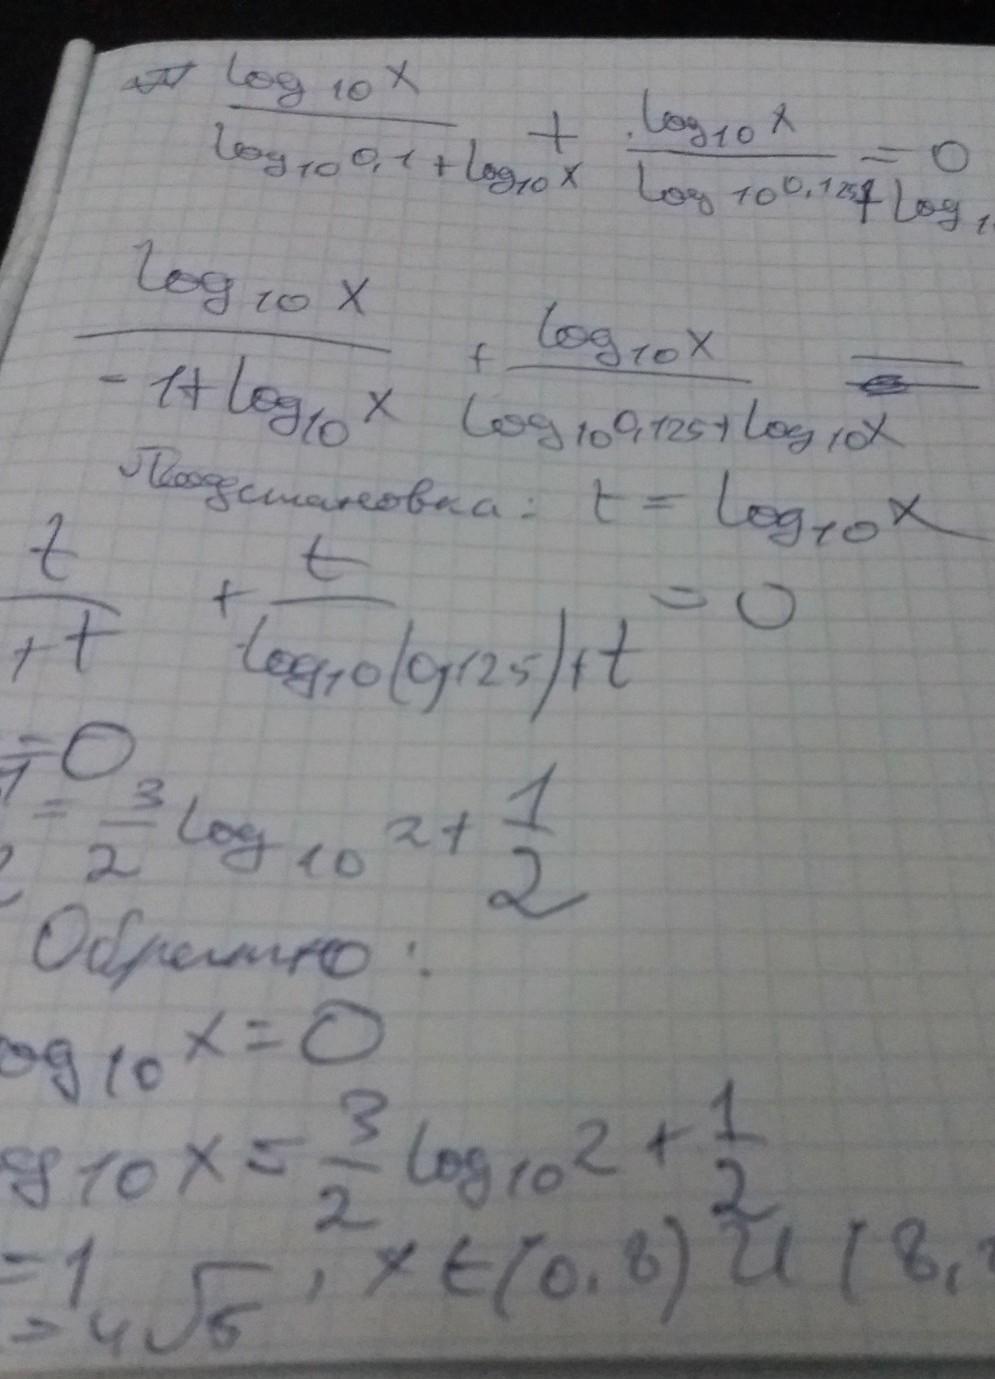 log₁₀x / (log₁₀0,1 + log₁₀x) + log₁₀x / (log₁₀0,125 + log₁
= 0
log₁₀x / (-1 + log₁₀x) + log₁₀x / (log₁₀0,125 + log₁₀x) =
Подстановка: t = log₁₀x
t / (+t) + t / (log₁₀(0,125)+t) = 0
1 = 0
2 = 3/2 log₁₀2 + 1/2
Обратно:
og₁₀x = 0
og₁₀x = 3/2 log₁₀2 + 1/2
= 1, x ∈ (0,8) U (8,
= 4√5